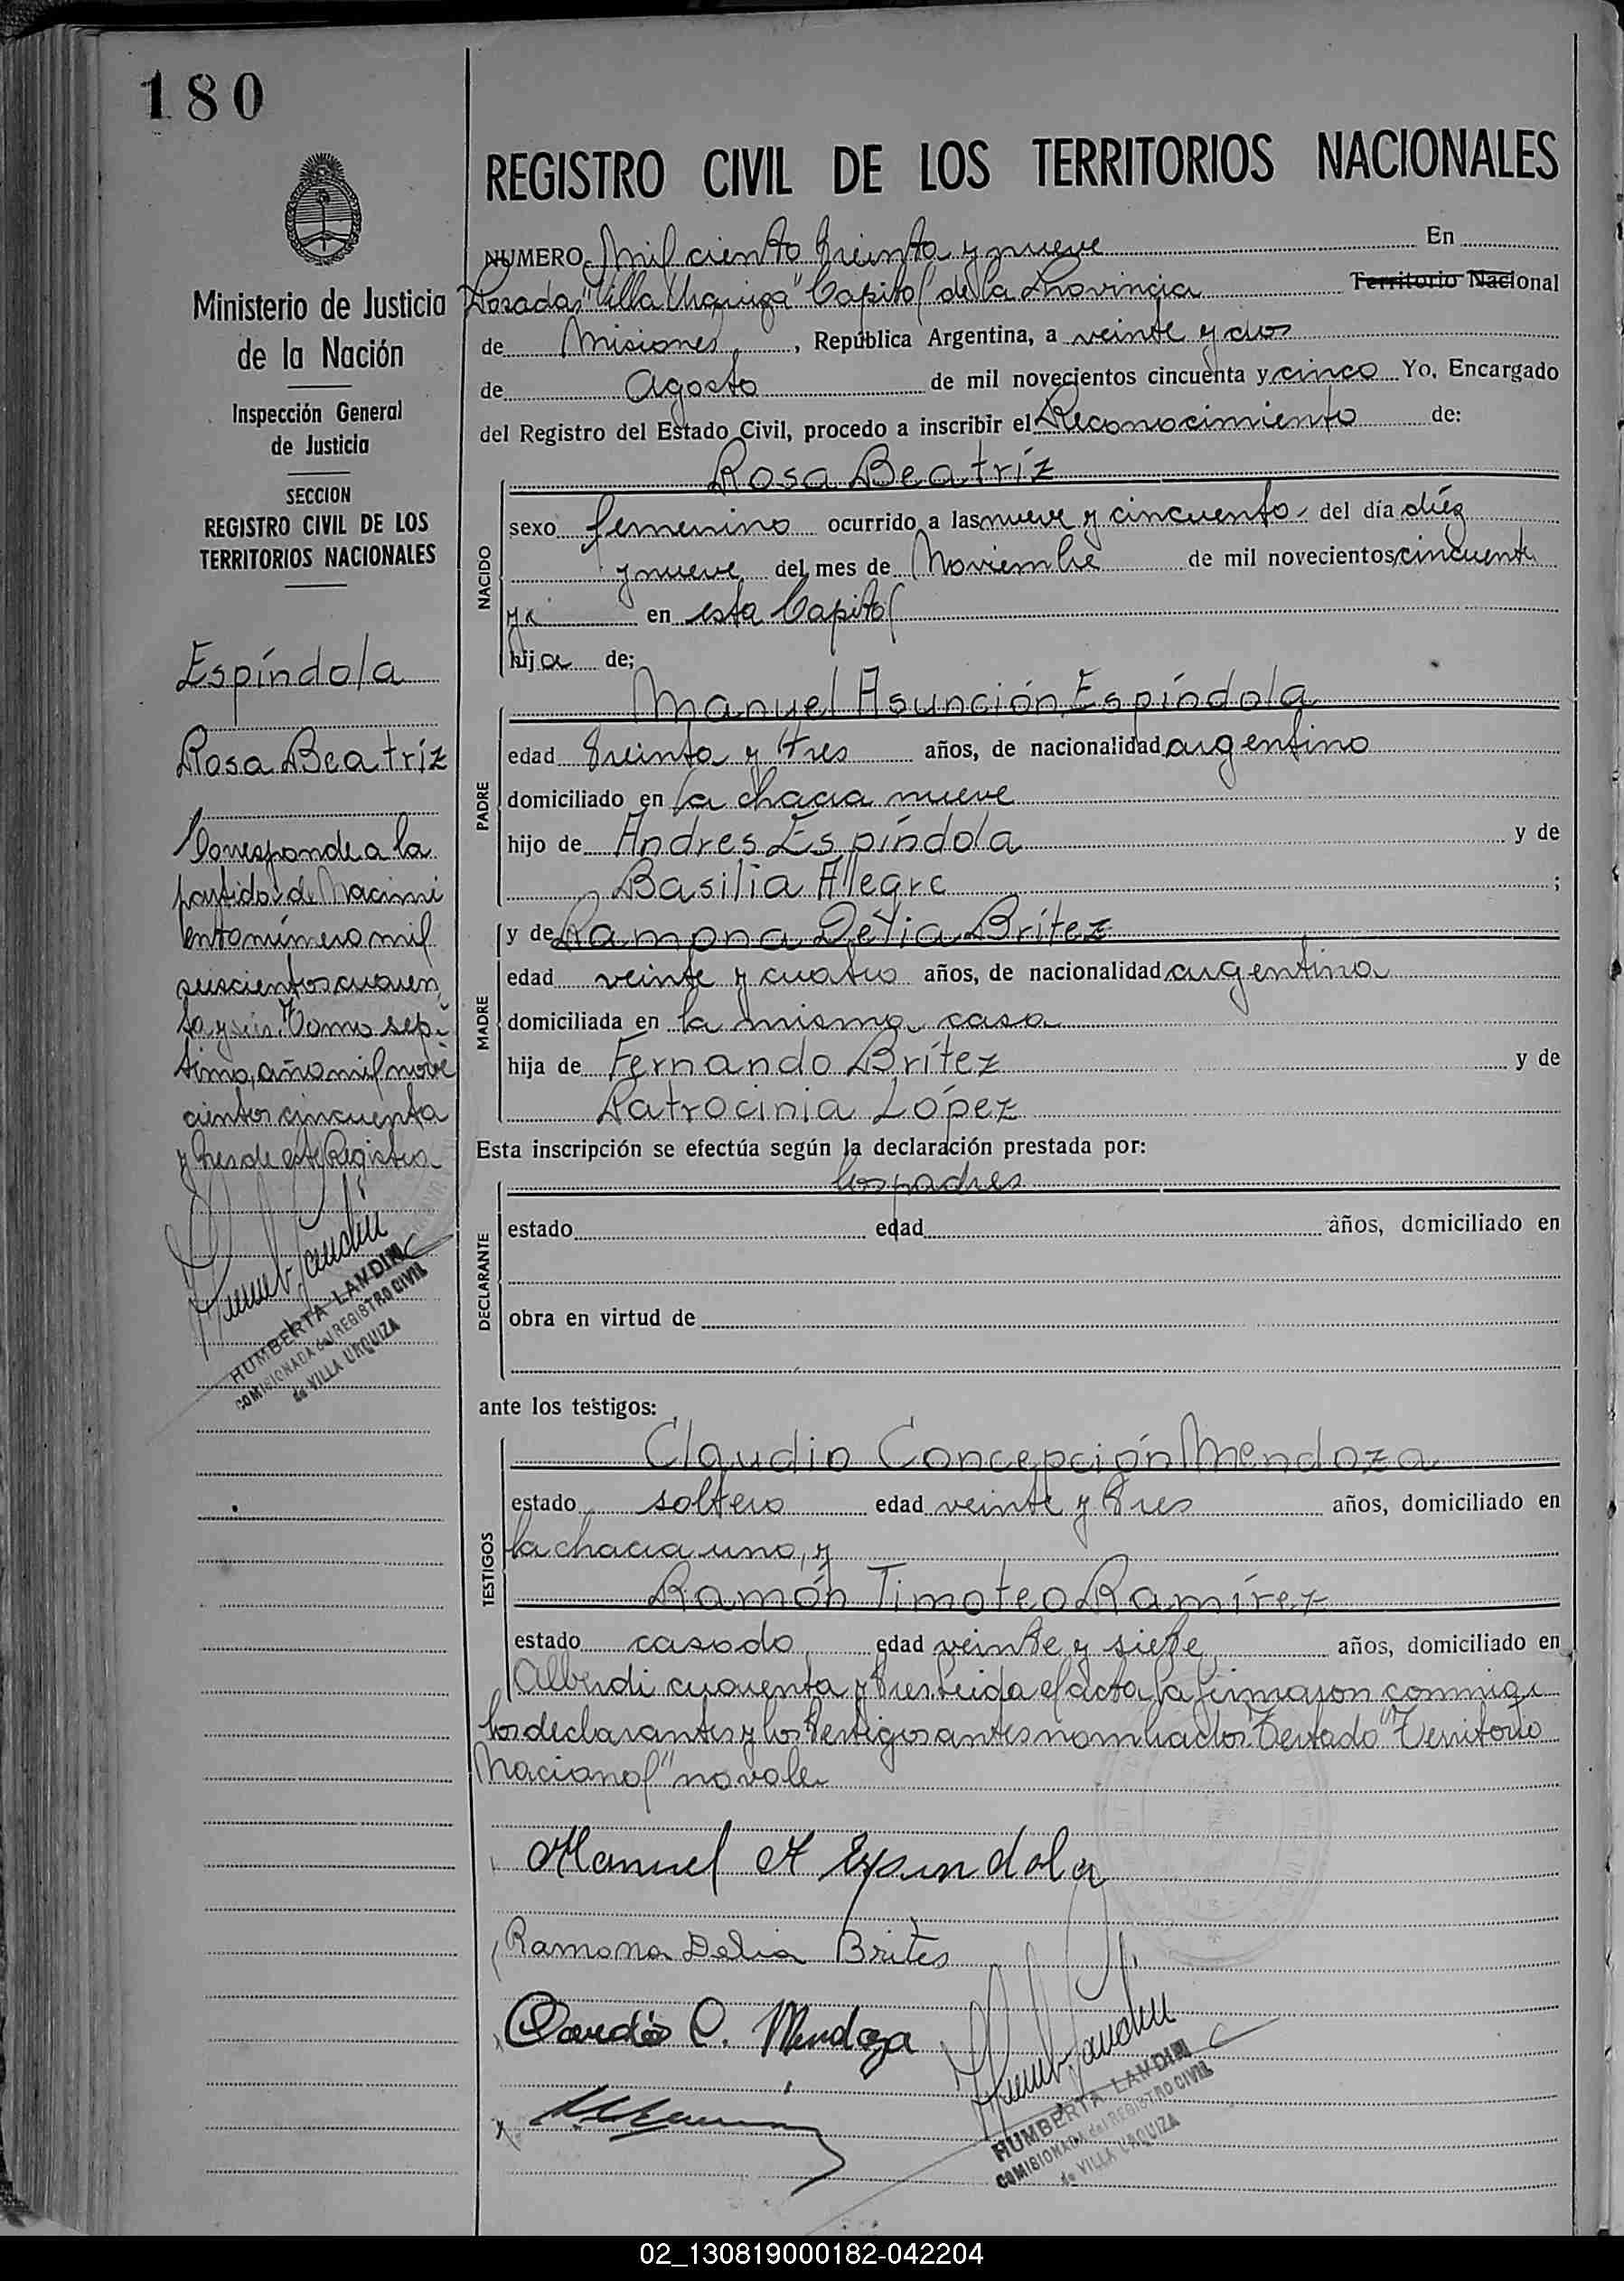 180
REGISTRO CIVIL DE LOS TERRITORIOS NACIONALES
NUMERO Mil ciento treinta y nueve En
Posadas, "Villa Urquiza" Capital de la Provincia Territorio Nacional
de Misiones, República Argentina, a veinte y dos
de Agosto de mil novecientos cincuenta y cinco Yo, Encargado
del Registro del Estado Civil, procedo a inscribir el Reconocimiento de:
Ministerio de Justicia
de la Nación
Inspección General
de Justicia
SECCION
REGISTRO CIVIL DE LOS
TERRITORIOS NACIONALES
Espíndola
Rosa Beatríz
Corresponde a la
partida de Nacimi
ento número mil
seiscientos cuaren
ta y seis, Tomo sép-
timo, año mil nove
cientos cincuenta
y tres de este Registro
HUMBERTA LANDIN
COMISIONADA del REGISTRO CIVIL
de VILLA URQUIZA
NACIDO
Rosa Beatríz
sexo femenino ocurrido a las nueve y cincuenta del día diéz
y nueve del mes de Noviembre de mil novecientos cincuenta
en esta Capital
hija de;
PADRE
Manuel Asunción Espíndola
edad treinta y tres años, de nacionalidad argentino
domiciliado en la chacra nueve
hijo de Andres Espíndola y de
Basilia Alegre ;
MADRE
y de Ramona Delia Brítez
edad veinte y cuatro años, de nacionalidad argentina
domiciliada en la misma casa
hija de Fernando Brítez y de
Patrocinia López
Esta inscripción se efectúa según la declaración prestada por:
DECLARANTE
los padres
estado edad años, domiciliado en
obra en virtud de
ante los testigos:
TESTIGOS
Claudio Concepción Mendoza
estado soltero edad veinte y tres años, domiciliado en
la chacra uno, y
Ramón Timoteo Ramírez
estado casado edad veinte y siete años, domiciliado en
Alberdi cuarenta y tres. Leida el acta, la firmaron conmigo
los declarantes y los testigos antes nombrados. Testado "Territorio
Nacional" no vale
Manuel A Espindola
Ramona Delia Brites
Claudio C. Mendoza
HUMBERTA LANDIN
COMISIONADA del REGISTRO CIVIL
de VILLA URQUIZA
02_130819000182-042204